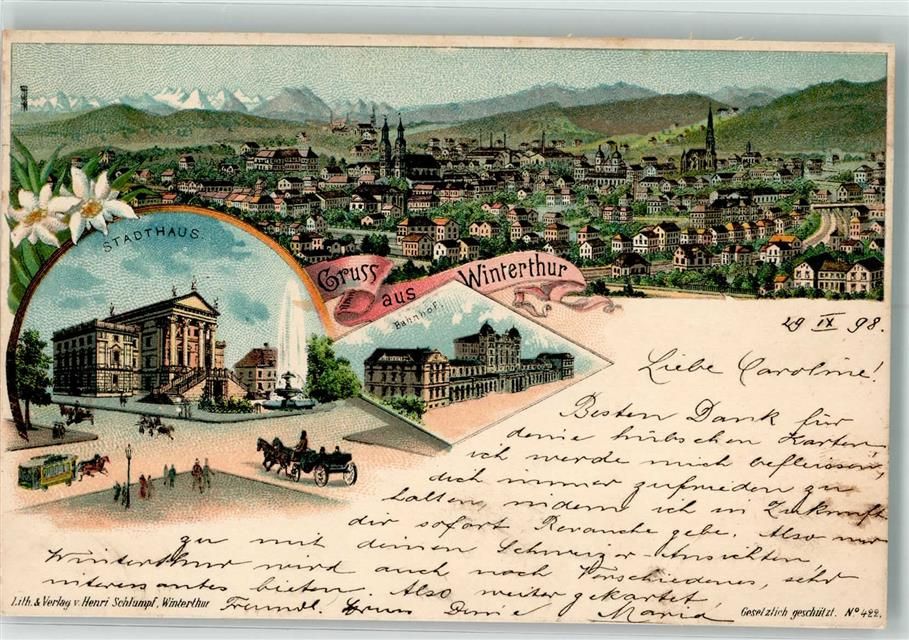 STADTHAUS.
Gruss aus Winterthur
Bahnhof.
29 IX 98.
Liebe Caroline!
Besten Dank für
deine hübschen Karten,
ich werde mich befleissen,
dich immer zufrieden zu
halten, indem ich in Zukunft
dir sofort Revanche gebe. Also nur
zu mit deinen Schweizer Ansichten,
Winterthur wird auch noch Verschiedenes, sehr
interessantes bieten. Also weiter gekartet
Freundl. Gruss Deine Maria
Lith. & Verlag v. Henri Schlumpf, Winterthur
Gesetzlich geschützt. No 422.